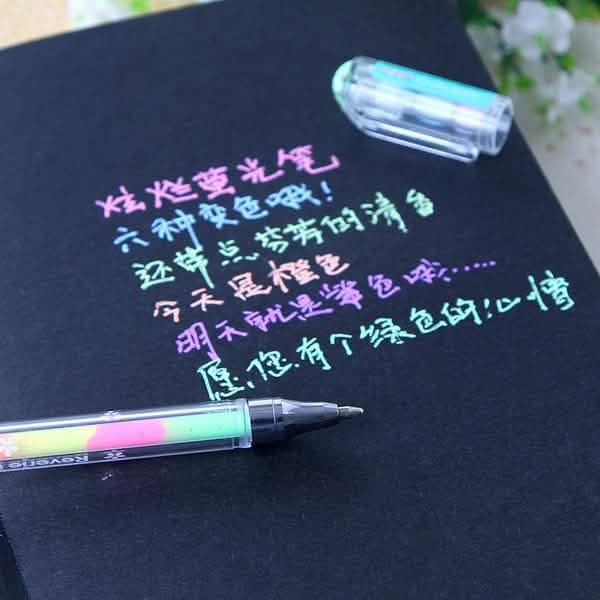 炫烂萤光笔
六种变色哦!
还带点芬芳的清香
今天是橙色
明天就是紫色哦......
愿您有个绿色的心情
Reverie